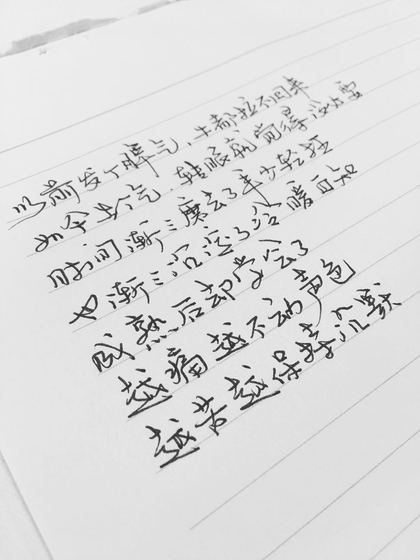 以前发个脾气，牛都拉不回来
如今生个气，转眼就觉得没必要
时间渐渐磨去了年少轻狂
也渐渐沉淀了冷暖自知
成熟后却学会了
越痛越不动声色
越苦越保持沉默